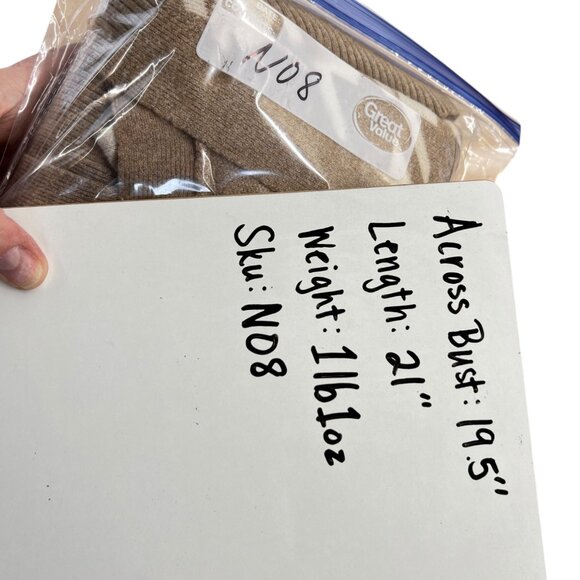 N08
Great
Value
Across Bust: 19.5"
Length: 21"
Weight: 1lb1oz
Sku: N08